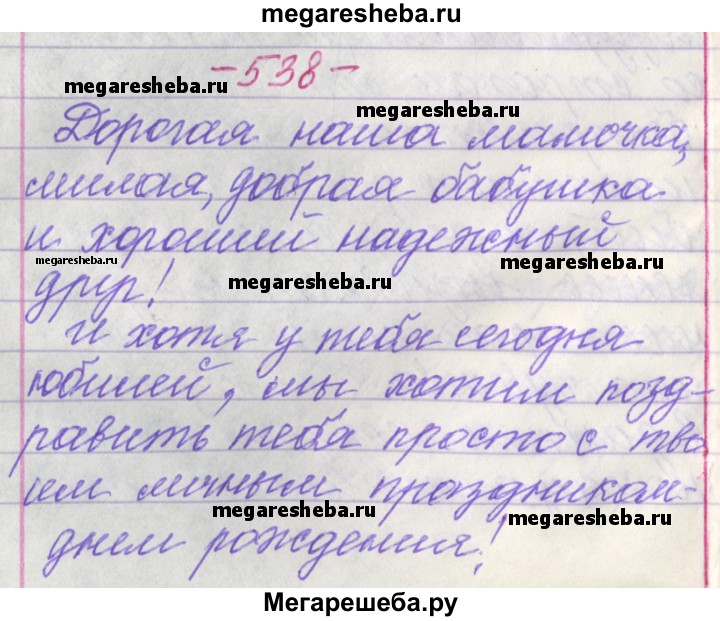 megaresheba.ru
-538-
megaresheba.ru
megaresheba.ru
Дорогая наша мамочка,
милая, добрая бабушка
и хороший надежный
megaresheba.ru
megaresheba.ru
megaresheba.ru
друг!
И хотя у тебя сегодня
юбилей, мы хотим позд-
равить тебя просто с тво
им личным праздником-
megaresheba.ru
megaresheba.ru
днем рождения!
Мегарешеба.ру